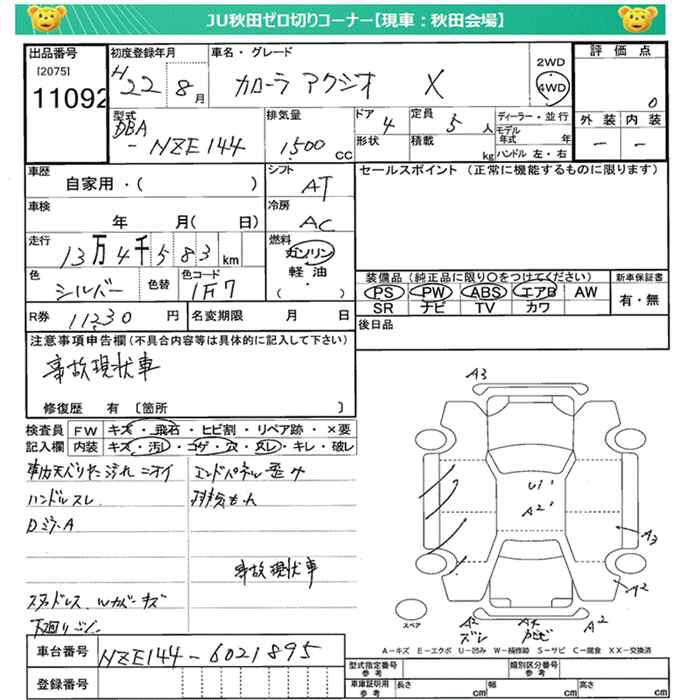 JU秋田ゼロ切りコーナー【現車：秋田会場】
出品番号
[2075]
11092
初度登録年月
H22 8月
車名・グレード
カローラ アクシオ X
2WD
4WD
評価点
0
外装 内装
― ―
型式
DBA
-NZE144
排気量
1500 CC
ドア 4
形状
定員 5人
積載 kg
ディーラー・並行
モデル年式 年
ハンドル 左・右
車歴
自家用・( )
シフト
AT
セールスポイント (正常に機能するものに限ります)
車検
年 月( 日)
冷房
AC
走行
13万4千583km
燃料
ガソリン
軽油
・
( )
色
シルバー
色替
色コード
1F7
装備品 (純正品に限り〇をつけてください)
PS PW ABS エアB AW
SR ナビ TV カワ
新車保証書
有・無
R券 11230 円
名変期限 月 日
後日品
注意事項申告欄 (不具合内容等は具体的に記入して下さい)
事故現状車
修復歴 有 〔箇所 〕
検査員 FW キズ・飛石・ヒビ割・リペア跡・×要
記入欄 内装 キズ・汚レ・コゲ・穴・スレ・キレ・破レ
ニオイ
エンドパネル
ハンドルスレ
Dミラ-A
事故現状車
スタッドレス Wカバーキズ
下廻りサビ
A3
U1
A2
A3
A2
A2
A2
スペア
A-キズ E-エクボ U-凹み W-補修跡 S-サビ C-腐食 XX-交換済
車台番号 NZE144-6021895
登録番号
型式指定番号 参考
類別区分番号 参考
車庫証明用 参考
長さ cm
幅 cm
高さ cm